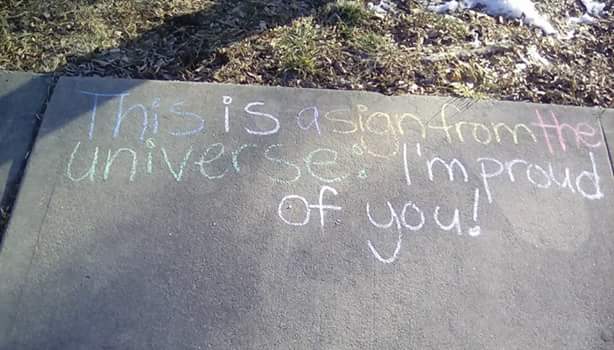 This is a sign from the
universe: I'm proud
of you!